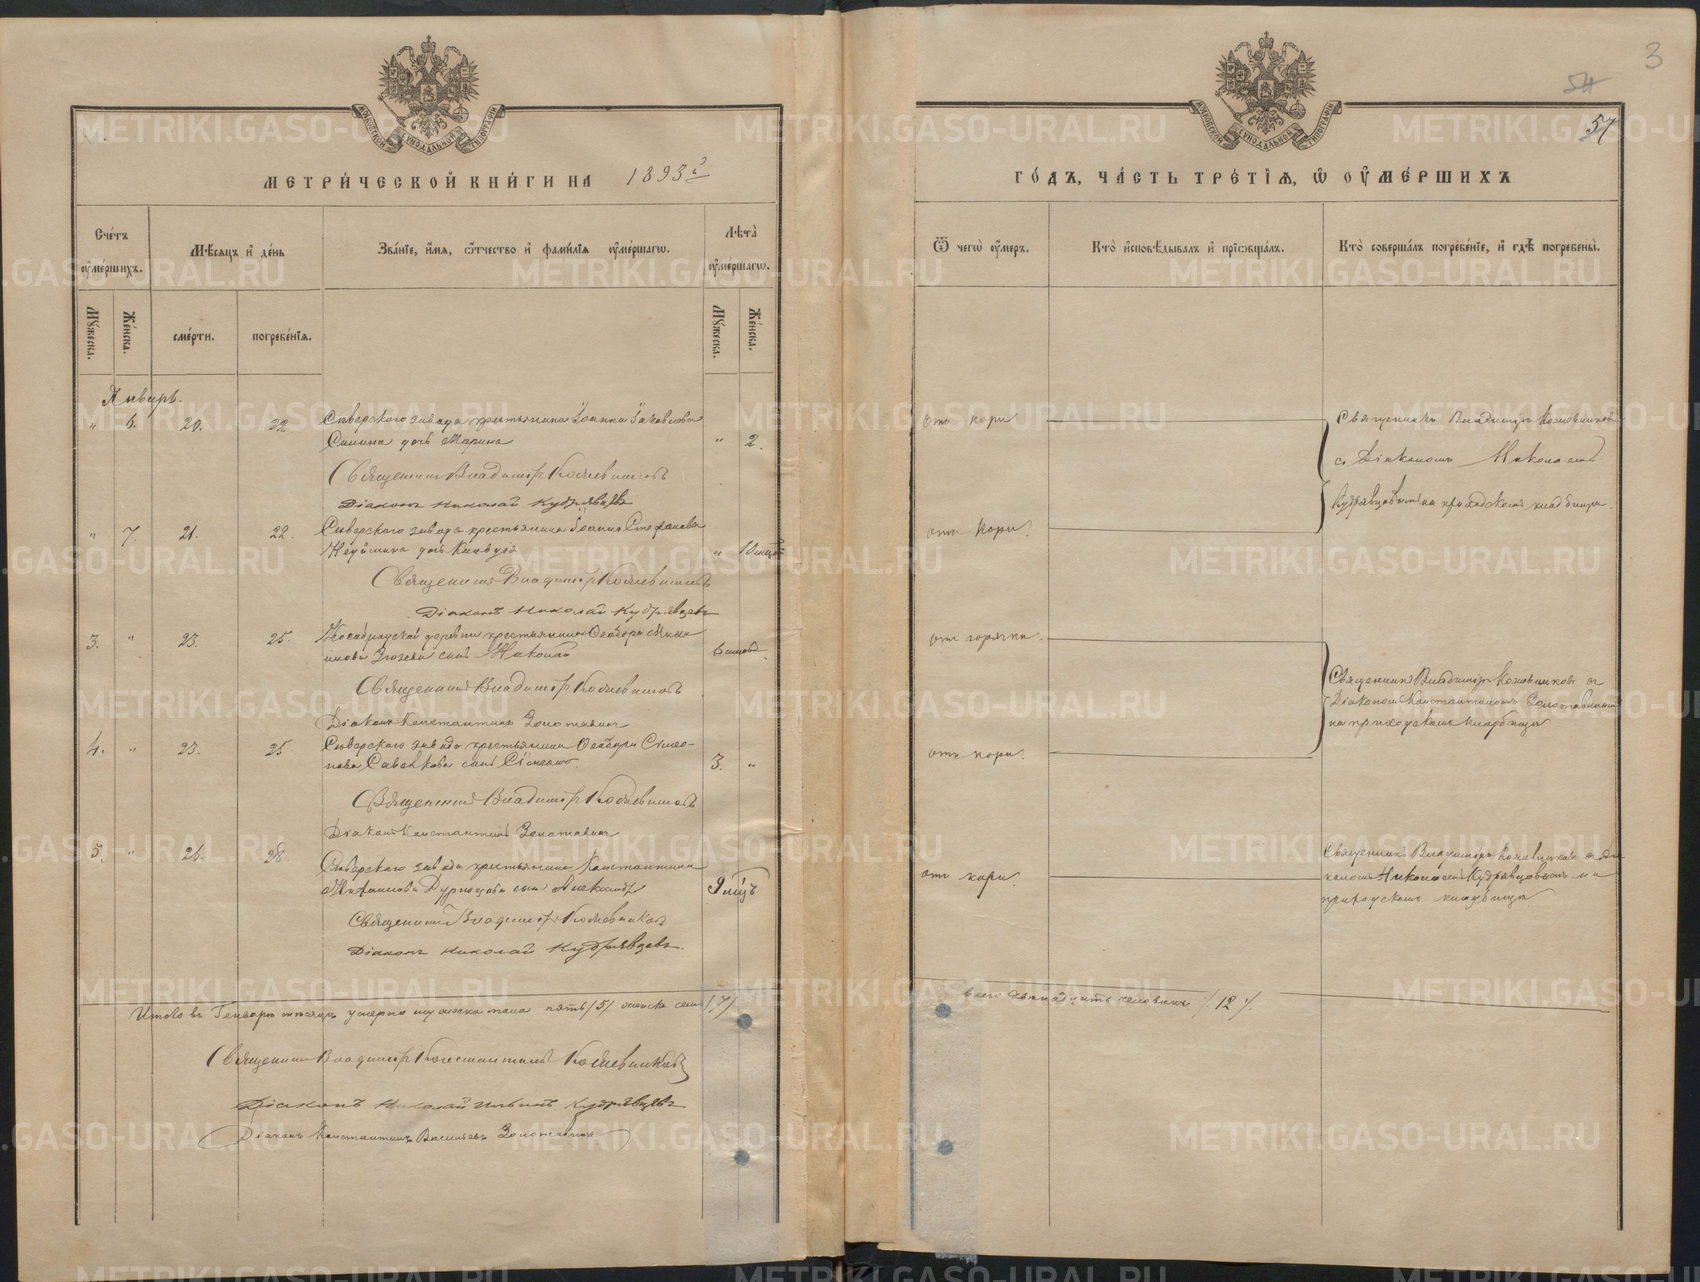 МЕТРИ́ЧЕСКОЙ КНИ́ГИ НА 1893 г.
Сче́тъ ᲂу҆ме́ршихъ.
Мѣ́сяцъ и҆ де́нь
Зва́нїе, и҆́мѧ, ѻ҆́тчество и҆ фами́лїѧ ᲂу҆ме́ршагѡ.
Лѣ́та ᲂу҆ме́ршагѡ.
Мꙋ́жеска.
Же́нска.
сме́рти.
погребе́нїѧ.
Мꙋ́жеска.
Же́нска.
Январь.
" 6. 20. 22 Сѣверскаго завода крестьянина Іоанна Іаковлева
Силина дочь Марина " 2.
Священникъ Владиміръ Кожевниковъ
Діаконъ Николай Кудрявцевъ
" 7. 21. 22. Сѣверскаго завода крестьянина Іоанна Стефанова
дочь " 10 мѣсц
Священникъ Владиміръ Кожевниковъ
Діаконъ Николай Кудрявцевъ
3. " 23. 25. деревни крестьянина Ѳеодора
сынъ Николай 6 мѣсяц.
Священникъ Владиміръ Кожевниковъ
Діаконъ Константинъ Золотавинъ
4. " 23. 25 Сѣверскаго завода крестьянина Ѳеодора Сімео-
нова Савенкова сынъ Сімеонъ. 3. "
Священникъ Владиміръ Кожевниковъ
Діаконъ Константинъ Золотавинъ
5. " 26. 28 Сѣверскаго завода крестьянина Константина
сынъ Александръ 9 мѣсц
Священникъ Владиміръ Кожевниковъ
Діаконъ Николай Кудрявцевъ.
Итого въ Генварѣ мѣсяцѣ умерло мужеска пола пять /5/ женска семь /7/
Священникъ Владиміръ Константиновъ Кожевниковъ
Діаконъ Николай Ильинъ Кудрявцевъ
Діаконъ Константинъ Васильевъ Золотавинъ
3
54
57
ГО́ДЪ, ЧА́СТЬ ТРЕ́ТЇѦ, Ѡ҆ ОУ҆МЕ́РШИХЪ
Ѿ чегѡ̀ ᲂу҆́меръ.
Кто̀ и҆сповѣ́дывалъ и҆ прїѡбща́лъ.
Кто̀ соверша́лъ погребе́нїе, и҆ гдѣ̀ погребены̀.
отъ кори
Священникъ Владиміръ Кожевниковъ
съ Діакономъ Николаемъ
Кудрявцевымъ на приходскомъ кладбищѣ.
отъ кори.
отъ горячки.
Священникъ Владиміръ Кожевниковъ съ
Діакономъ Константиномъ Золотавинымъ
на приходскомъ кладбищѣ
отъ кори.
отъ кори.
Священникъ Владиміръ Кожевниковъ съ діа-
кономъ Николаемъ Кудрявцевымъ на
приходскомъ кладбищѣ
всего двѣнадцать человѣкъ /12/.
METRIKI.GASO-URAL.RU